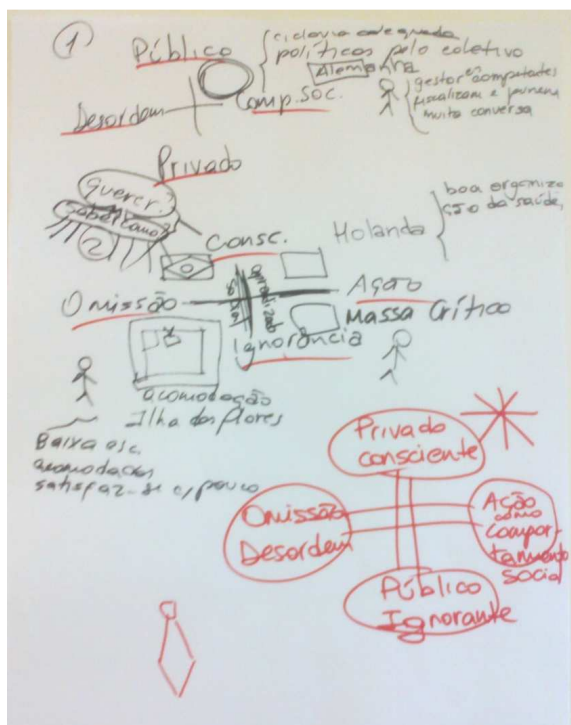 1
Público
ciclovia adequada
políticos pelo coletivo
Alemanha
gestores competentes
fiscalizam e punem
muita conversa
Desordem
Comp. Soc.
Privado
querer
2
boa organiza
ção da saúde
Consc.
Holanda
Omissão
aprendizado
Ação
Massa Crítico
Ignorância
acomodação
Ilha das flores
Baixa esc.
acomodados
satisfaz-se c/ pouco
Privado
consciente
Omissão
Desordem
Ação
como
compor-
tamento
social
Público
Ignorante